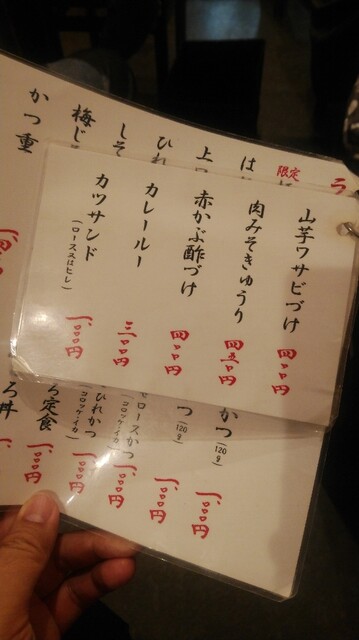 山芋ワサビづけ 四〇〇円
肉みそきゅうり 四五〇円
赤かぶ酢づけ 四〇〇円
カレールー 三〇〇円
カツサンド (ロース又はヒレ) 一、〇〇〇円
限定
しそ
かつ重
かつ (120g) 一、〇〇〇円
つ (120g) 一、〇〇〇円
ロースかつ (コロッケ、イカ) 一、〇〇〇円
ひれかつ (コロッケ、イカ) 一、〇〇〇円
ろ定食 一、〇〇〇円
ろ丼